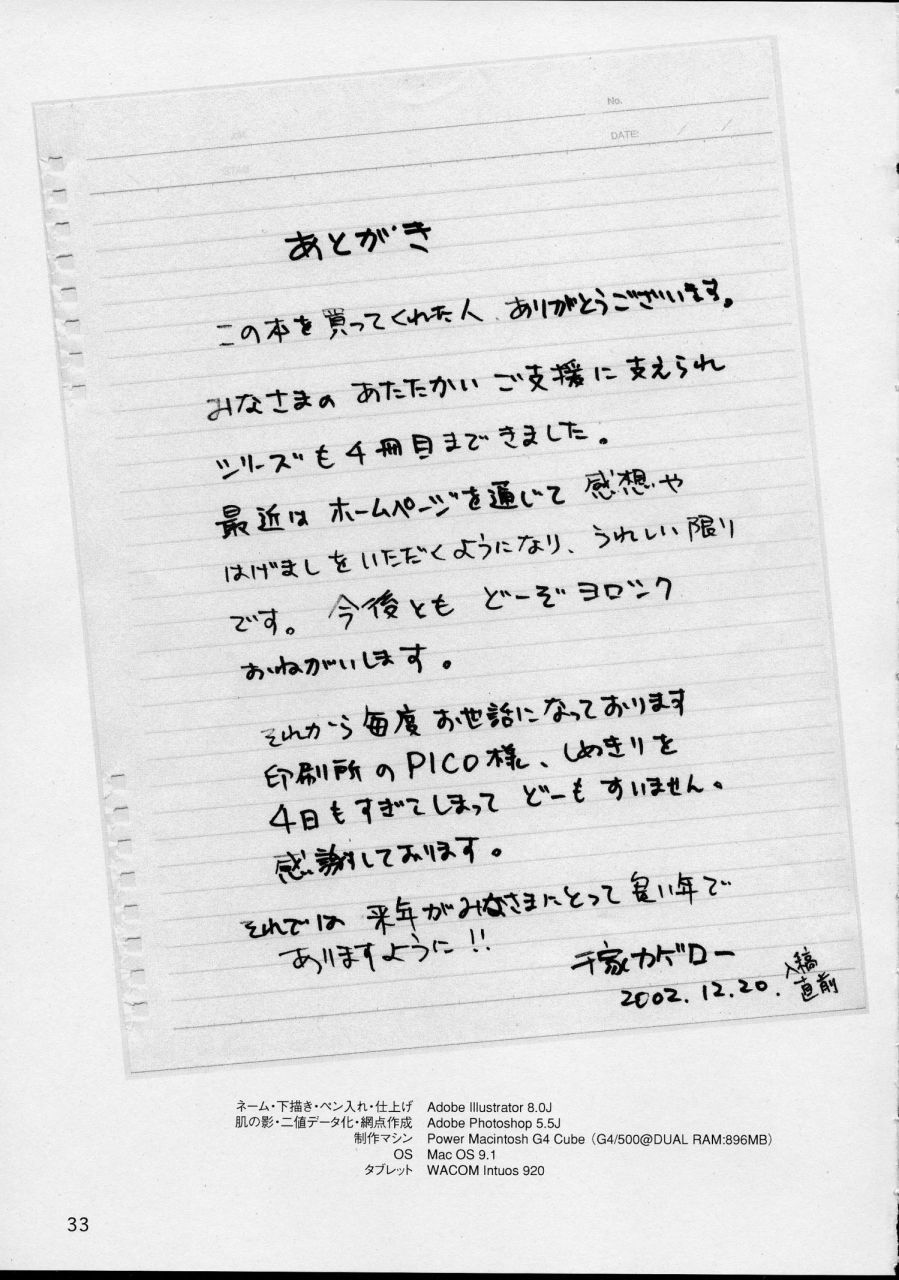 No.
DATE: / /
あとがき
この本を買ってくれた人、ありがとうございます。
みなさまの あたたかい ご支援に 支えられ
シリーズも 4冊目まできました。
最近は ホームページを通じて 感想や
はげましをいただくようになり、うれしい限り
です。今後とも どーぞ ヨロシク
おねがいします。
それから 毎度 お世話になっております
印刷所の PICO様、しめきりを
4日もすぎてしまって どーも すいません。
感謝しております。
それでは 来年がみなさまにとって 良い年で
ありますように!!
千家カゲロー
2002.12.20. 入稿
直前
ネーム・下描き・ペン入れ・仕上げ Adobe Illustrator 8.0J
肌の影・二値データ化・網点作成 Adobe Photoshop 5.5J
制作マシン Power Macintosh G4 Cube（G4/500@DUAL RAM:896MB）
OS Mac OS 9.1
タブレット WACOM Intuos 920
33